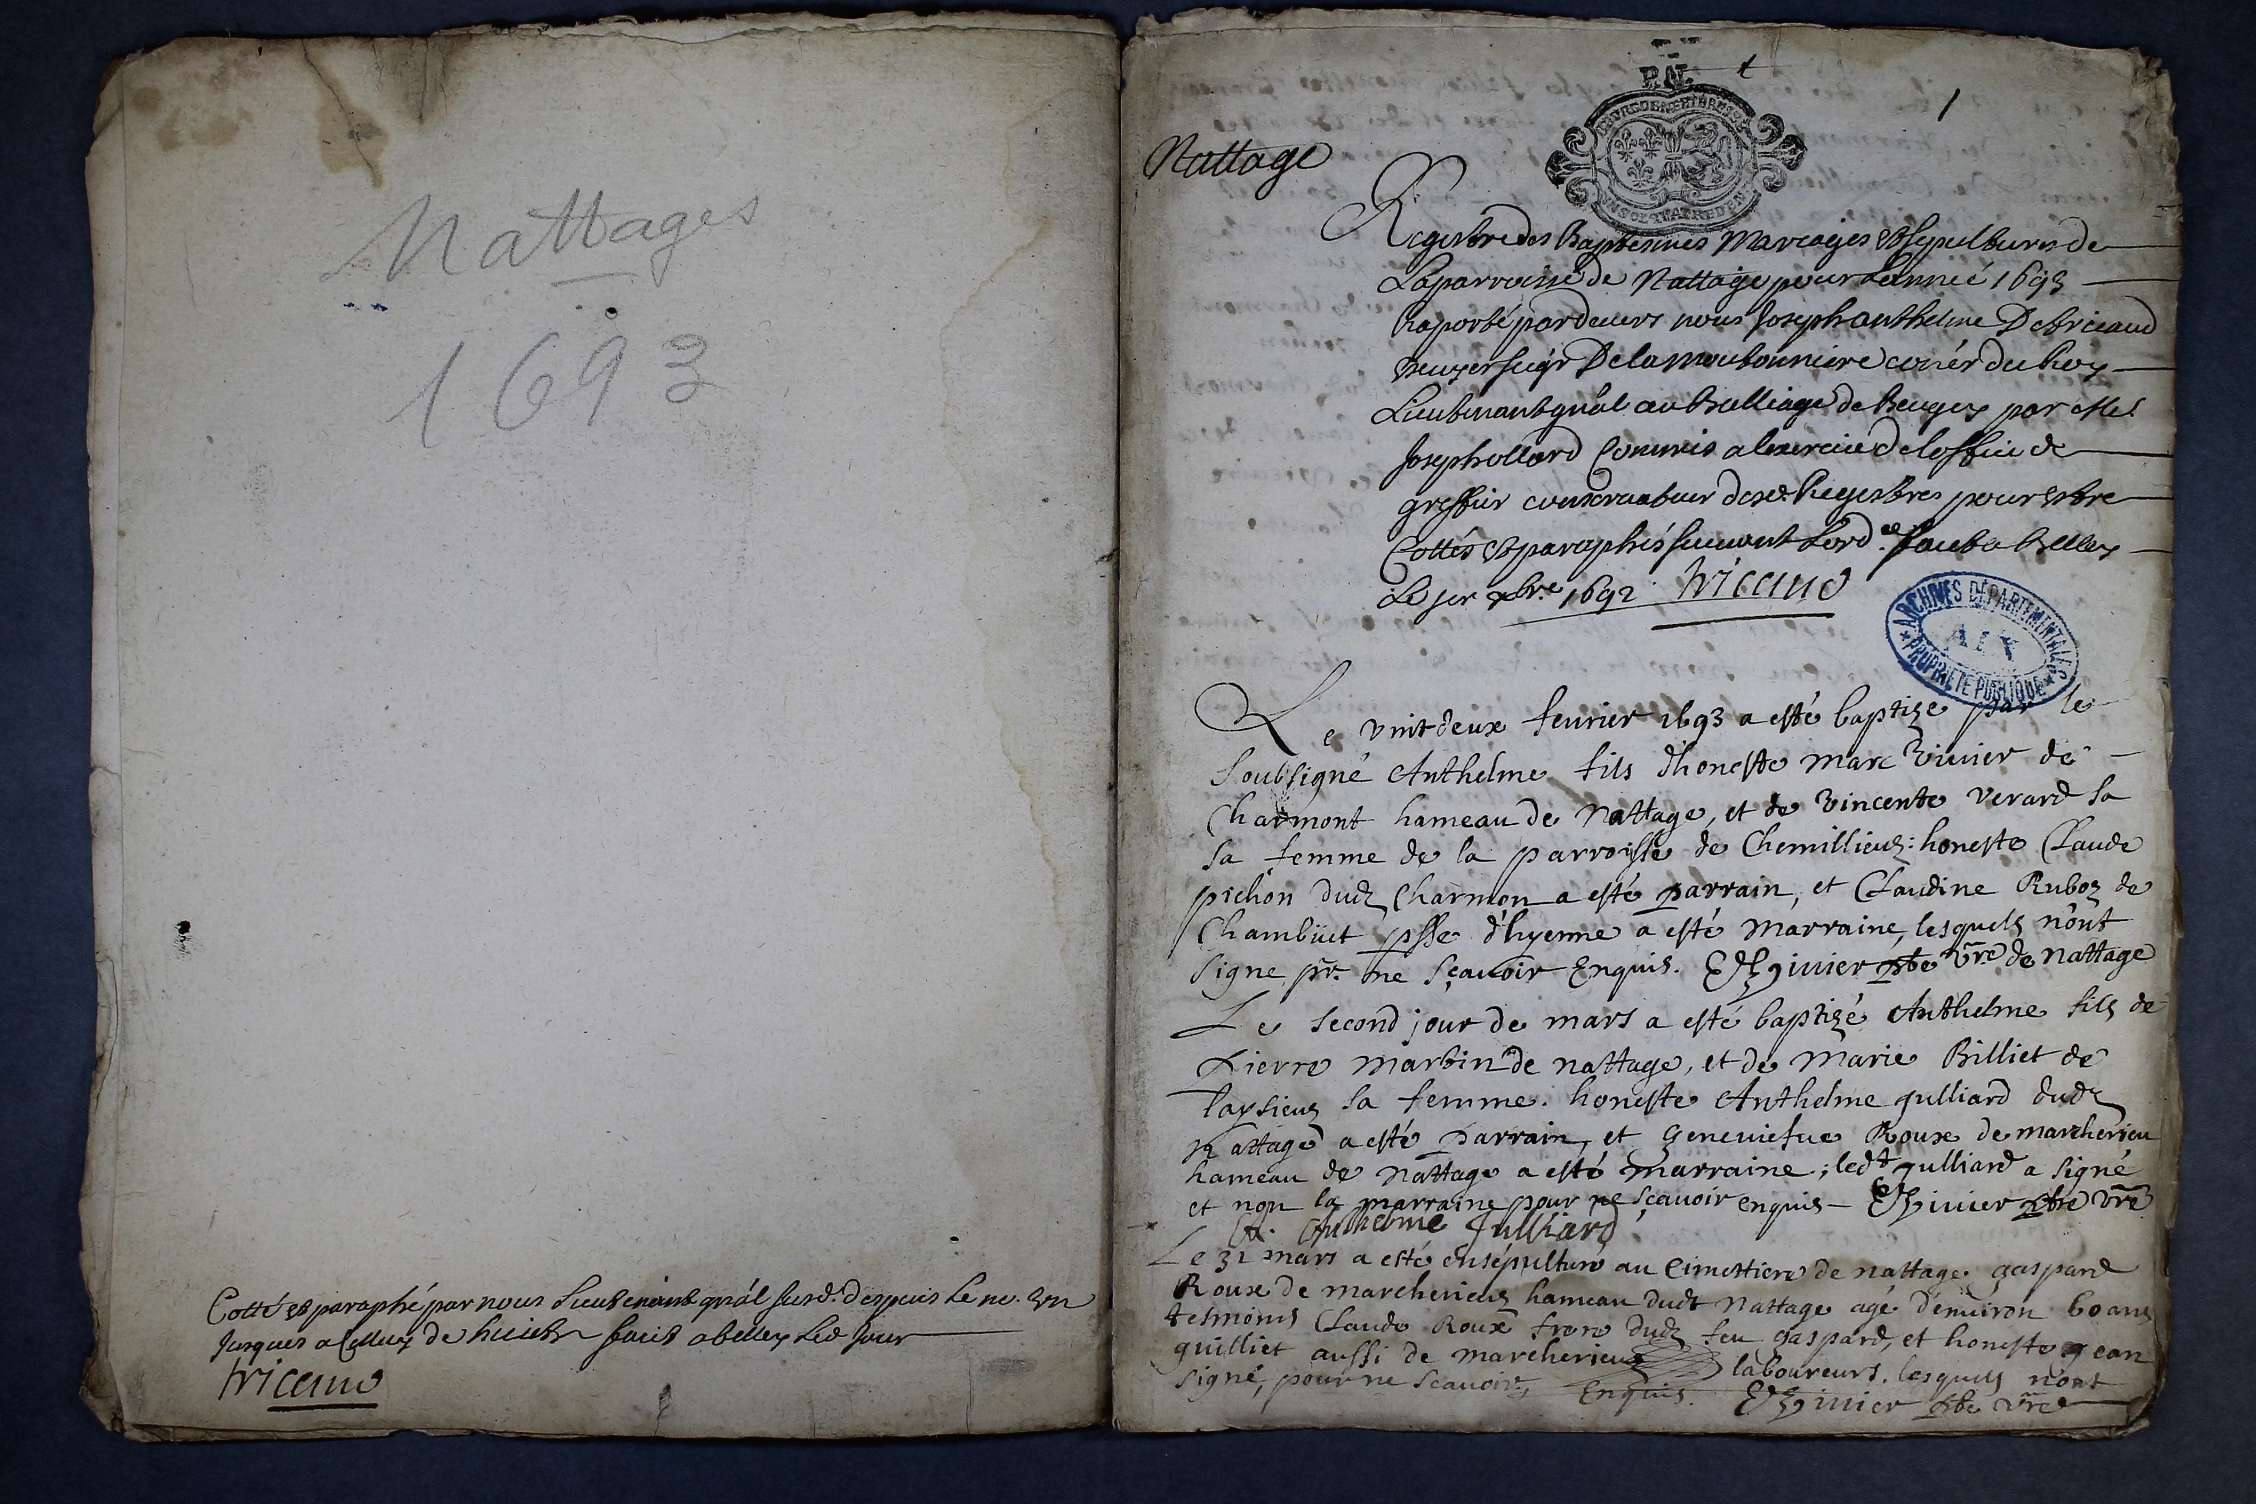 Nattages
1693
Cotté et paraphé par nous Lieutenant gnâl susd. despuis le no. un
jusques a Celluy de huict faict a belley led Jour
Tricaud
P. N. 1
1
Nattage
Registre des Baptesmes Mariages et sepultures de
La parroisse de Nattage pour Lannée 1693
raporté pardevers nous Joseph anthelme De tricaud
seigr De la moutonniere coner du Roy
Lieutenant gnâl au Bailliage de beugey par Me
Joseph ollard Commis a lexercice de loffice de
greffier conservateur desd. Registres pour estre
Cottés et paraphés suivant Lord.ce faict a belley
Le xbre 1692 Tricaud
ARCHIVES DÉPARTEMENTALES
AIN
PROPRIÉTÉ PUBLIQUE
Le vint deux feurier 1693 a esté baptizé par le
soubsigné Anthelme fils d'honeste Marc Viuier de
Charmont hameau de Nattage, et de Vincente Verard sa
sa femme de la parroisse de Chemillieuz: honeste Claude
pichon dudz Charmon a esté parrain, et Claudine Ruboz de
Chambuet psse d'hyenne a esté marraine, lesquels n'ont
signe pr. ne sçauoir Enquis. viuier pbre vre de Nattage
Le second jour de mars a esté baptizé Anthelme fils de
Pierre Martin de nattage, et de Marie Billiet de
Laysieuz sa femme. honeste Anthelme gulliard dudz
Nattage a esté parrain, et Geneuiefue Roux de marcherieu
hameau de Nattage a esté marraine; ledt gulliard a signé
et non la marraine pour ne sçauoir enquis - viuier pbre vre
Anthelme Julliard
Le 31 mars a esté ensépulturé au Cimettiere de nattage. gaspard
Roux de marcherieuz hameau dudt Nattage agé d'enuiron 60 ans
tesmoins Claude Roux frere dudz feu gaspard, et honeste Jean
guilliet aussi de marcherieuz laboureurs. lesquels n'ont
signé, pour ne scauoir, Enquis. viuier pbre vre